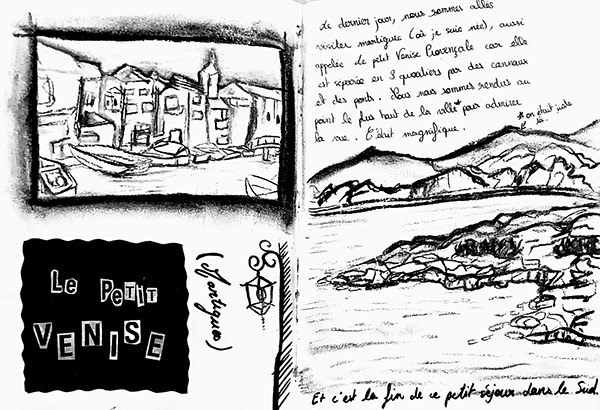 Le PeTiT
VENISE
(Martigues)
Le dernier jour, nous sommes allés
visiter martigues (où je suis née), aussi
appelée Le petit Venise Provençale car elle
est séparée en 3 quartiers par des cannaux
et des ponts. Nous nous sommes rendus au
point le plus haut de la ville* pour admirer
la vue. C'était magnifique.
*on était juste
là
Et c'est la fin de ce petit séjour dans le Sud.